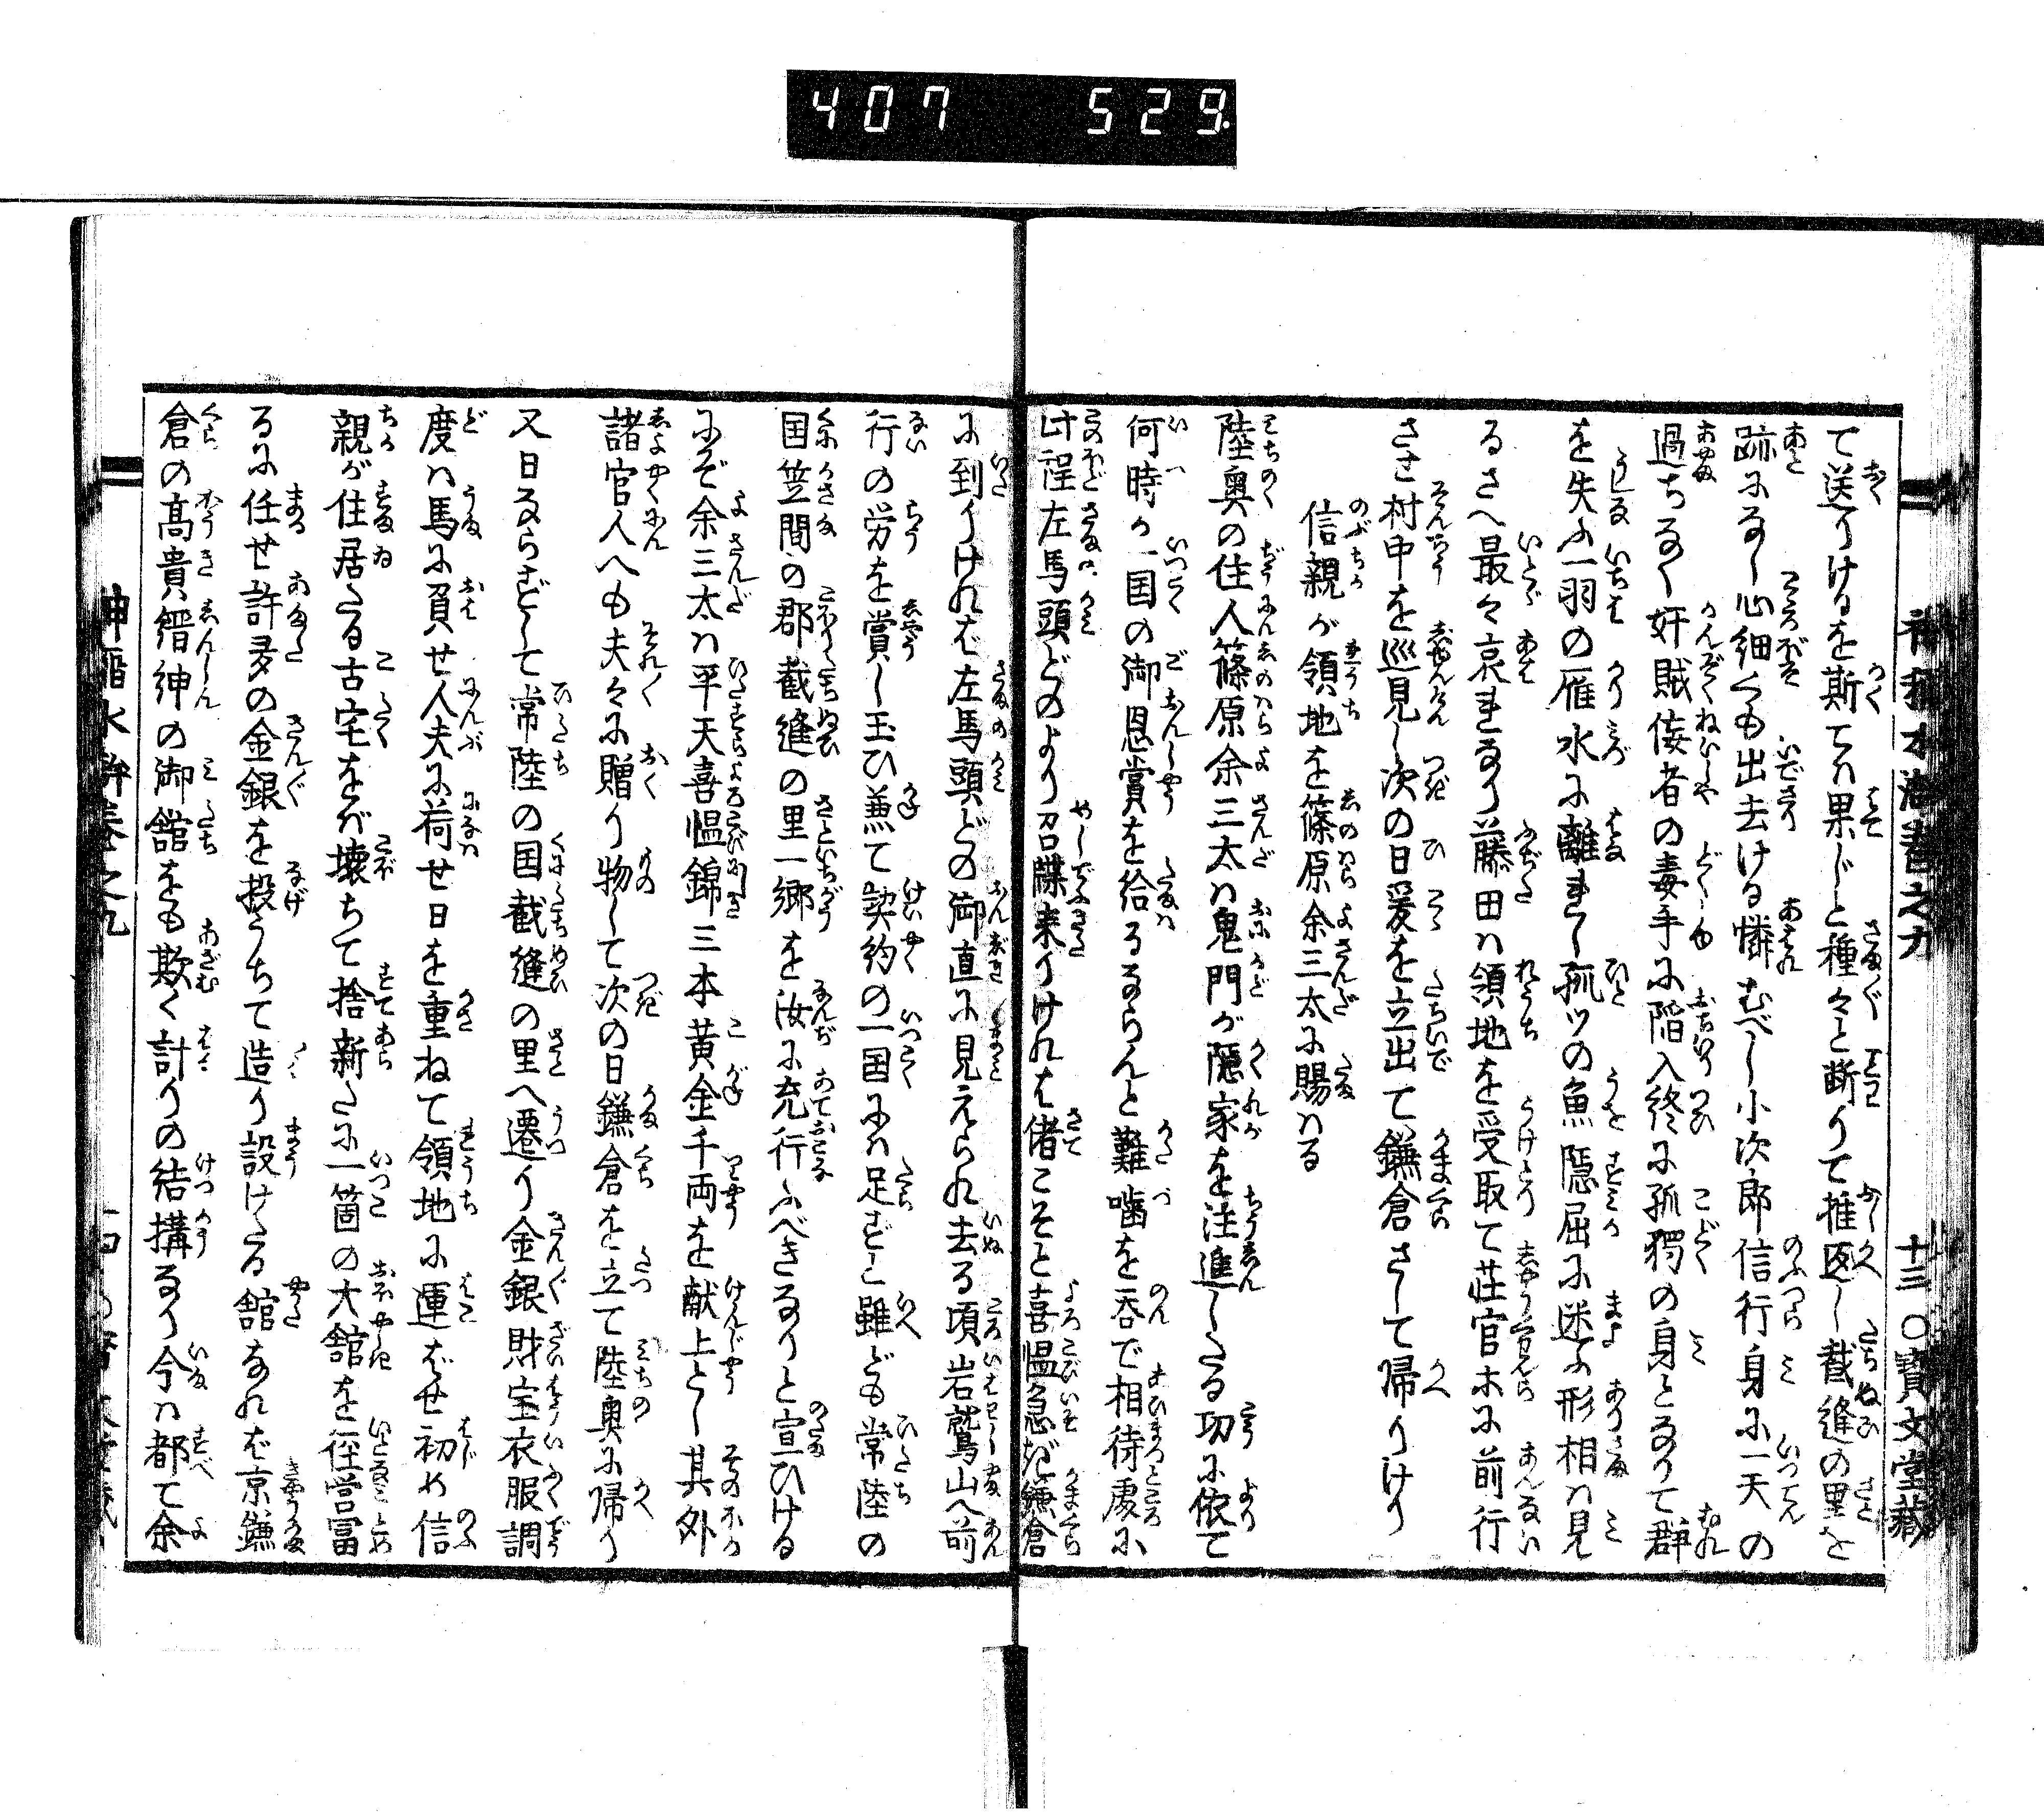 407 529.
十三〇寶文堂藏
て送りけるを斯ては果じと種々と断りて推返し截縫の里を
跡になし心細くも出去ける憐むべし小次郎信行身に一天の
過ちなく奸賊侫者の毒手に陥入終に孤独の身となりて群
を失ふ一羽の雁水に離まし孤ツの魚隠屈に迷ふ形相は見
るさへ最々哀まなり藤田は領地を受取て荘官ホに前行
させ村中を巡見し次の日爰を立出て鎌倉さして帰りけり
信親が領地を篠原余三太に賜はる
陸奥の住人篠原余三太は鬼門が隠家を注進したる功に依て
何時か一国の御恩賞を給るならんと難噛を呑で相待處に
此程左馬頭どのより召牒来りければ偖こそと喜愠急ぎ鎌倉
に到りければ左馬頭どの御直に見えられ去る頃岩鷲山へ前
行の労を賞し玉ひ兼て契約の一国には足ずと雖ども常陸の
国笠間の郡截縫の里一郷を汝に充行ふべきなりと宣ひける
にぞ余三太は平天喜愠錦三本黄金千両を献上とし其外
諸官人へも夫々に贈り物して次の日鎌倉を立て陸奥に帰り
又日ならずして常陸の国截縫の里へ遷り金銀財宝衣服調
度は馬に負せ人夫に荷せ日を重ねて領地に運ばせ初め信
親が住居たる古宅をば壊ちて捨新たに一箇の大舘を径営冨
るに任せ許多の金銀を投うちて造り設けたる舘なれば京鎌
倉の髙貴縉紳の御舘をも欺く計りの結搆なり今は都て余